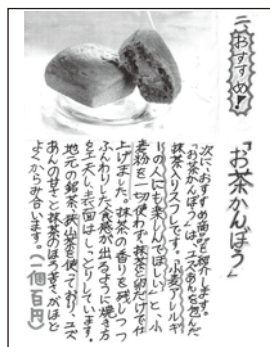 二、おすすめ!
「お茶かんぼう」
次におすすめ商品を紹介します。
「お茶かんぼう」は、ユズあんを包んだ
抹茶入りスフレです。「小麦アレルギ
ーの人にも楽しんでほしい」と、小
麦粉を一切使わず、抹茶と卵だけで仕
上げました。抹茶の香りを残しつつ
ふんわりした食感が出るように焼き方
を工夫し、表面はしっとりしています。
地元の銘茶、狭山茶を使っており、ユズ
あんの甘さと抹茶のほろ苦さがほど
よくからみ合います。(一個百円)